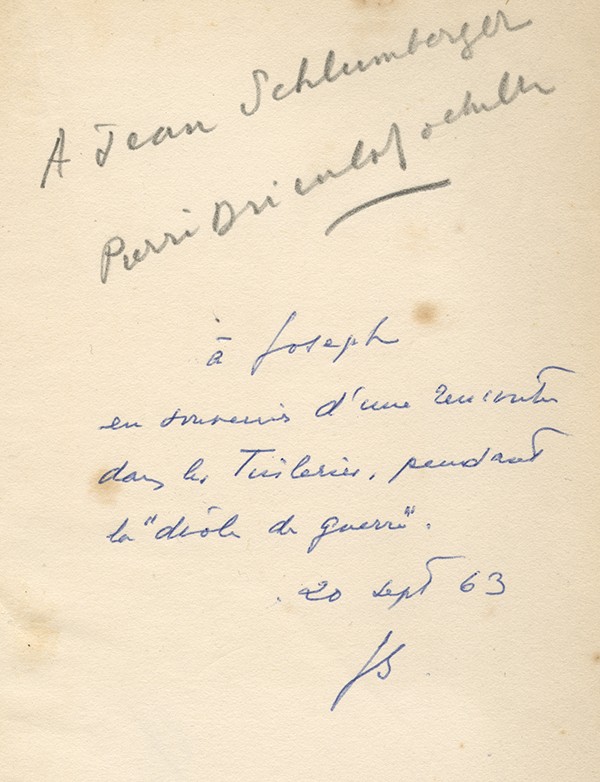 A Jean Schlumberger
Pierre Drieu la Rochelle
à Joseph
en souvenir d'une rencontre
dans les Tuileries, pendant
la "drôle de guerre".
20 sept 63
JS